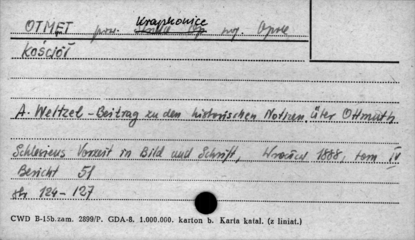 Krapkowice
OTMĘT pow. woj. Opole
KOŚCIÓŁ
A. Weltzel - Beitrag zu den historischen Notizen über Ottmuth
Schlesiens Vorzeit in Bild und Schrift, Wrocław 1888, tom IV
Bericht 51
str. 124-127
CWD B-15b.zam. 2899/P. GDA-8. 1.000.000. karton b. Karta katal. (z liniat.)